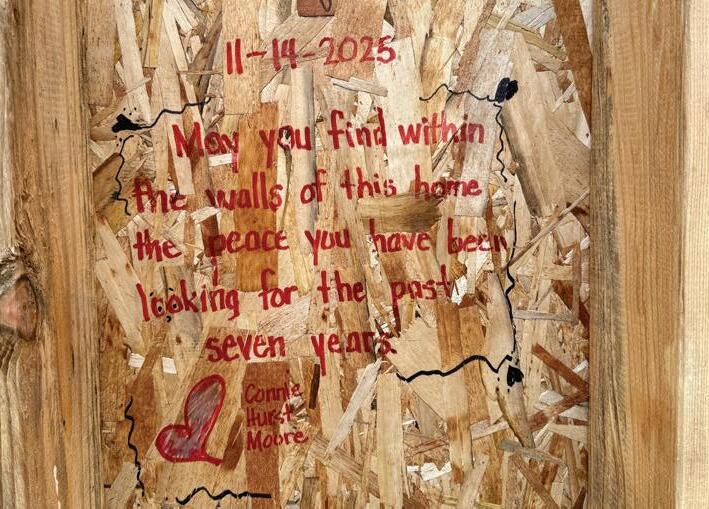 11-14-2025
May you find within
the walls of this home
the peace you have been
looking for the past
seven years.
Connie
Hurst
Moore